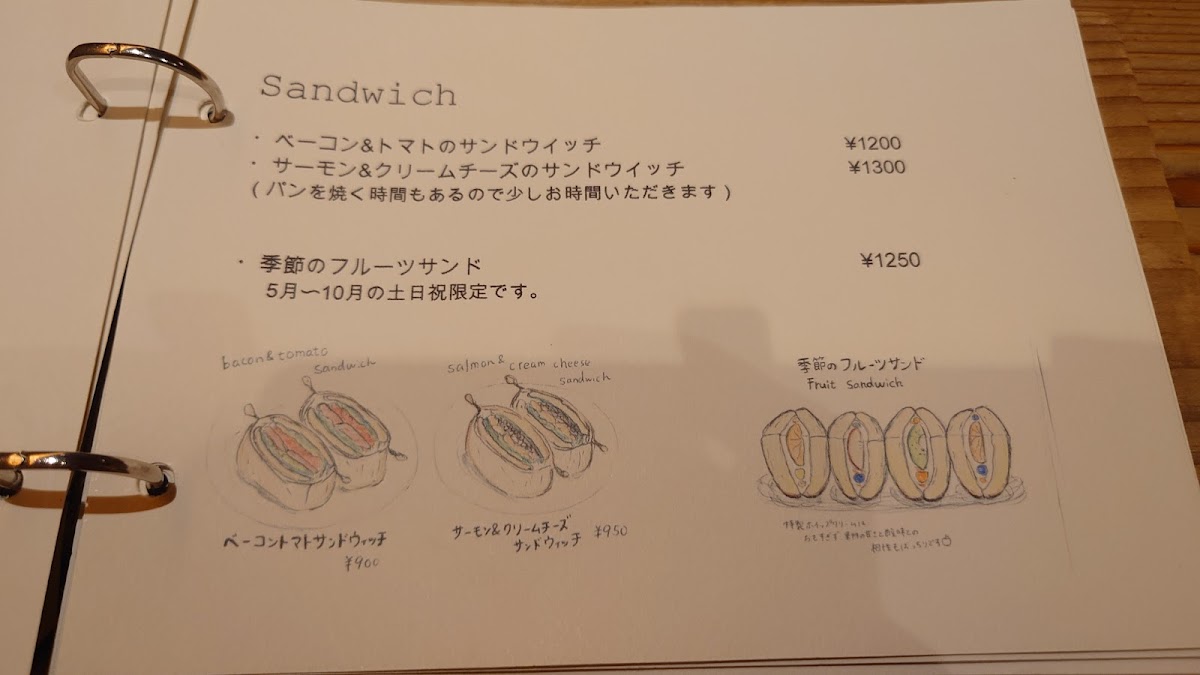 Sandwich
・ ベーコン&トマトのサンドウイッチ ¥1200
・ サーモン&クリームチーズのサンドウイッチ ¥1300
(パンを焼く時間もあるので少しお時間いただきます)
・ 季節のフルーツサンド ¥1250
5月〜10月の土日祝限定です。
bacon & tomato
sandwich
ベーコントマトサンドウィッチ
¥900
salmon & cream cheese
sandwich
サーモン&クリームチーズ
サンドウィッチ ¥950
季節のフルーツサンド
Fruit Sandwich
特製ホイップクリームは
おもすぎず 果物の甘さと酸味との
相性もばっちりです